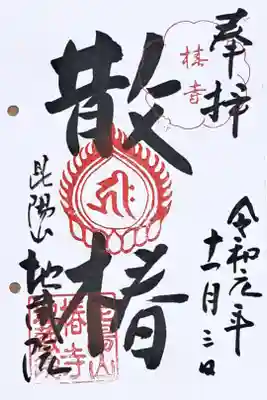 奉拝
椿音
令和元年
十一月三日
散椿
昆陽山
地蔵院
椿寺